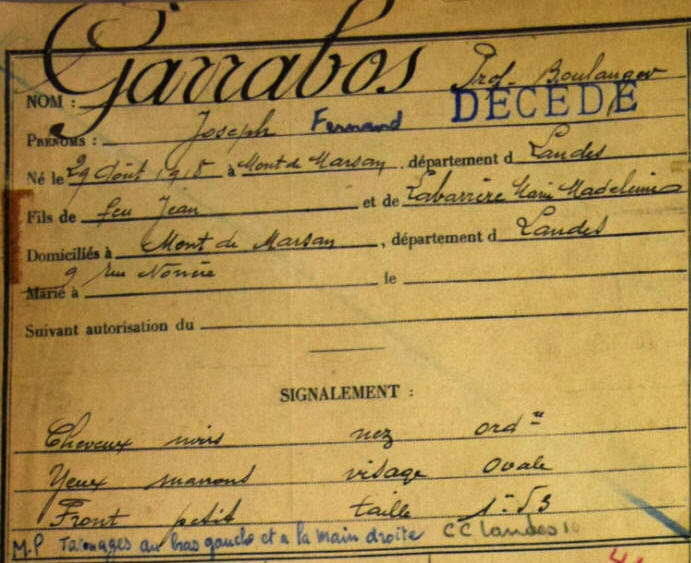 NOM : Garrabos Prof. Boulanger
DÉCÉDÉ
PRÉNOMS : Joseph Fernand
Né le 29 Août 1915 à Mont de Marsan, département d Landes
Fils de feu Jean et de Labarrère Marie Madeleine
Domiciliés à Mont de Marsan, département d Landes
9 rue
Marié à le
Suivant autorisation du
SIGNALEMENT :
Cheveux noirs nez ord re
Yeux marrons visage ovale
Front petit taille 1m 53
M.P Tatouages au bras gauche et a la main droite CC Landes